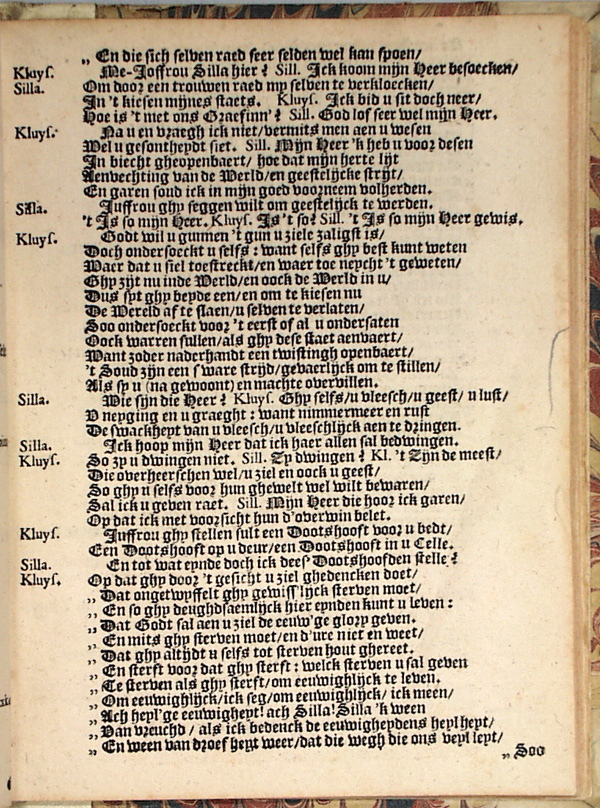 „ En die sich selven raed seer selden wel kan spoen/
Kluys. Me-Joffrou Silla hier? Sill. Ick koom mijn Heer besoecken/
Silla. Om door een trouwen raed my selven te verkloecken/
In 't kiesen mijnes staets. Kluys. Ick bid u sit doch neer/
Hoe is 't met ons Graefinn'? Sill. God lof seer wel mijn Heer.
Kluys. Na u en vraegh ick niet/vermits men aen u wesen
Wel u gesontheydt siet. Sill. Mijn Heer 'k heb u voor desen
In biecht gheopenbaert/ hoe dat mijn herte lijt
Aenvechting van de Werld/en geestelijcke strijt/
En garen soud ick in mijn goed voorneem volherden.
Silla. Juffrou ghy seggen wilt om geestelijck te werden.
't Is so mijn Heer. Kluys. Is 't so? Sill. 't Is so mijn Heer gewis.
Kluys. Godt wil u gunnen 't gun u ziele zaligst is/
Doch ondersoeckt u selfs: want selfs ghy best kunt weten
Waer dat u siel toestreckt/en waer toe neycht 't geweten/
Ghy zijt nu inde Werld/en oock de Werld in u/
Dus syt ghy beyde een/en om te kiesen nu
De Wereld af te slaen/u selven te verlaten/
Soo ondersoeckt voor 't eerst of al u ondersaten
Oock warren sullen/als ghy dese staet aenvaert/
Want zoder naderhandt een twistingh openbaert/
't Soud zijn een sware strijd/gevaerlijck om te stillen/
Als sy u (na gewoont) en machte overvillen.
Silla. Wie sijn die Heer? Kluys. Ghy selfs/u vleesch/u geest/ u lust/
U neyging en u graeght: want nimmermeer en rust
De swackheyt van u vleesch/u vleeschlijck aen te dringen.
Silla. Ick hoop mijn Heer dat ick haer allen sal bedwingen.
Kluys. So zy u dwingen niet. Sill. Zy dwingen? Kl. 't Zyn de meest/
Die overheerschen wel/u ziel en oock u geest/
So ghy u selfs voor hun ghewelt wel wilt bewaren/
Sal ick u geven raet. Sill. Mijn Heer die hoor ick garen/
Op dat ick met voorsicht hun d'overwin belet.
Kluys. Juffrou ghy stellen sult een Dootshooft voor u bedt/
Een Dootshooft op u deur/een Dootshooft in u Celle.
Silla. En tot wat eynde doch ick dees' Dootshoofden stelle?
Kluys. Op dat ghy door 't gesicht u ziel ghedencken doet/
„ Dat ongetwyffelt ghy gewiss'lijck sterven moet/
„ En so ghy deughdsaemlijck hier eynden kunt u leven:
„ Dat Godt sal aen u ziel de eeuw'ge glory geven.
„ En mits ghy sterven moet/en d'ure niet en weet/
„ Dat ghy altijdt u selfs tot sterven hout ghereet.
„ En sterft voor dat ghy sterft: welck sterven u sal geven
„ Te sterven als ghy sterft/om eeuwighlijck te leven.
„ Om eeuwighlijck/ick seg/om eeuwighlijck/ ick meen/
„ Ach heyl'ge eeuwigheyt! ach Silla! Silla 'k ween
„ Van vreuchd/ als ick bedenck de eeuwigheydens heylheyt/
„ En ween van droefheyt weer/dat die wegh die ons veyl leyt/
„ Soo